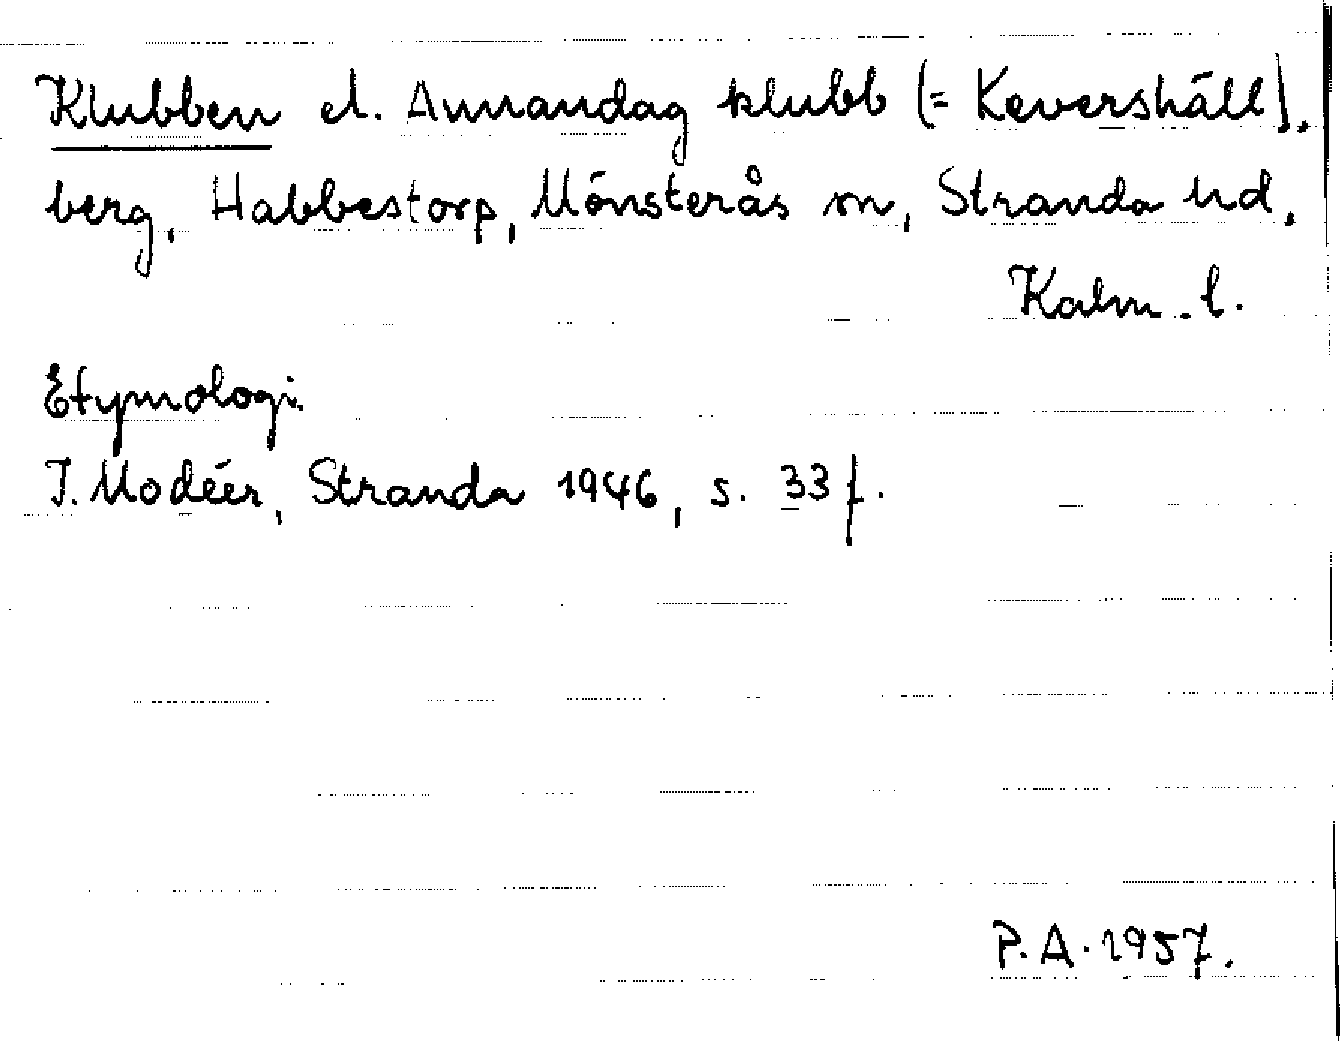 Klubben el. Annandag klubb (= Kevershäll),
berg, Habbestorp, Mönsterås sn, Stranda hd,
Kalm. l.
Etymologi.
I. Modéer, Stranda 1946, s. 33 f.
P. A. 1957.